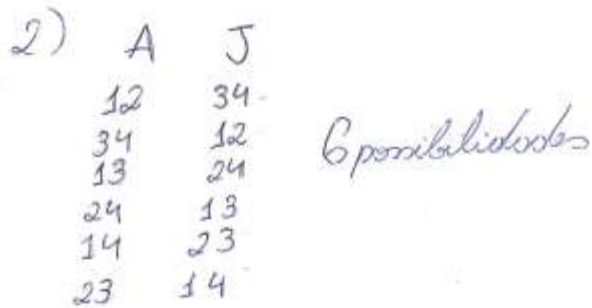 2) A J
12 34
34 12
13 24
24 13
14 23
23 14
6 possibilidades